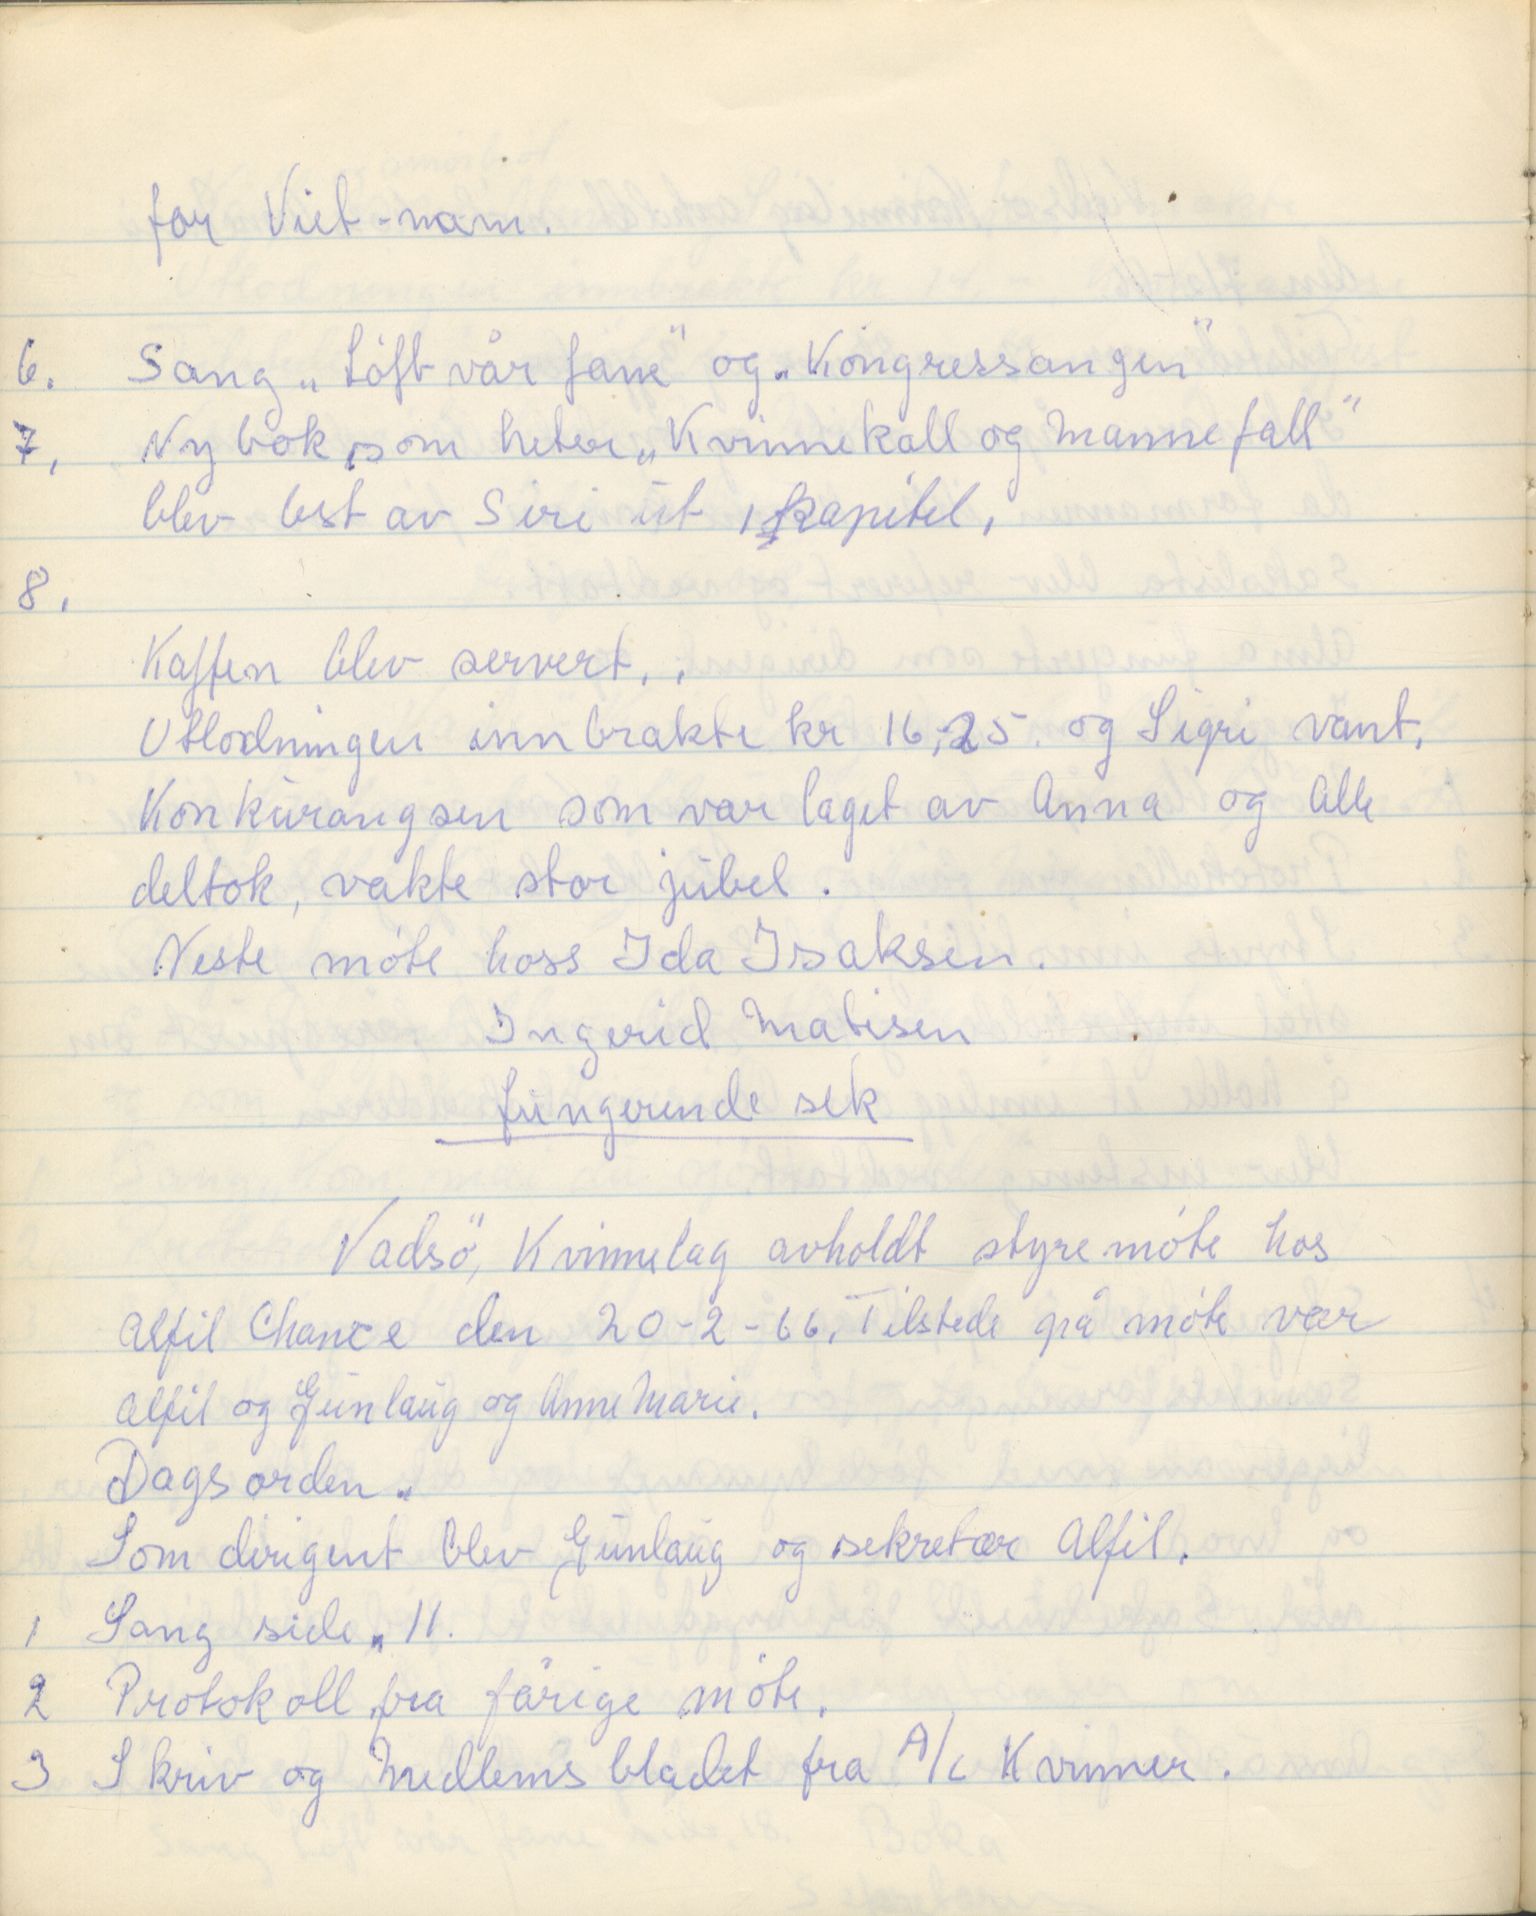 for Viet-nam.
6. Sang „Löft vår fane" og „Kongressangen"
7, Ny bok som heter „Kvinnekall og Mannefall"
blev lest av Siri ut 1 kapitel,
8.
Kaffen blev servert..
Utlodningen innbrakte kr 16,25. og Sigri vant.
Konkurangsen som var laget av Anna og Alle
deltok, vakte stor jubel.
Neste möte hoss Ida Isaksen.
Ingerid Matisen
fungerende sek
Vadsö, Kvinnelag avholdt styremöte hos
Alfil Chance den 20-2-66. Tilstede på möte var
Alfil og Gunlaug og Anne Marie.
Dagsorden.
Som dirigent blev Gunlaug og sekretær Alfil.
1 Sang side „ 11.
2 Protokoll fra fårige möte.
3 Skriv og Medlemsbladet fra A/L Kvinner.